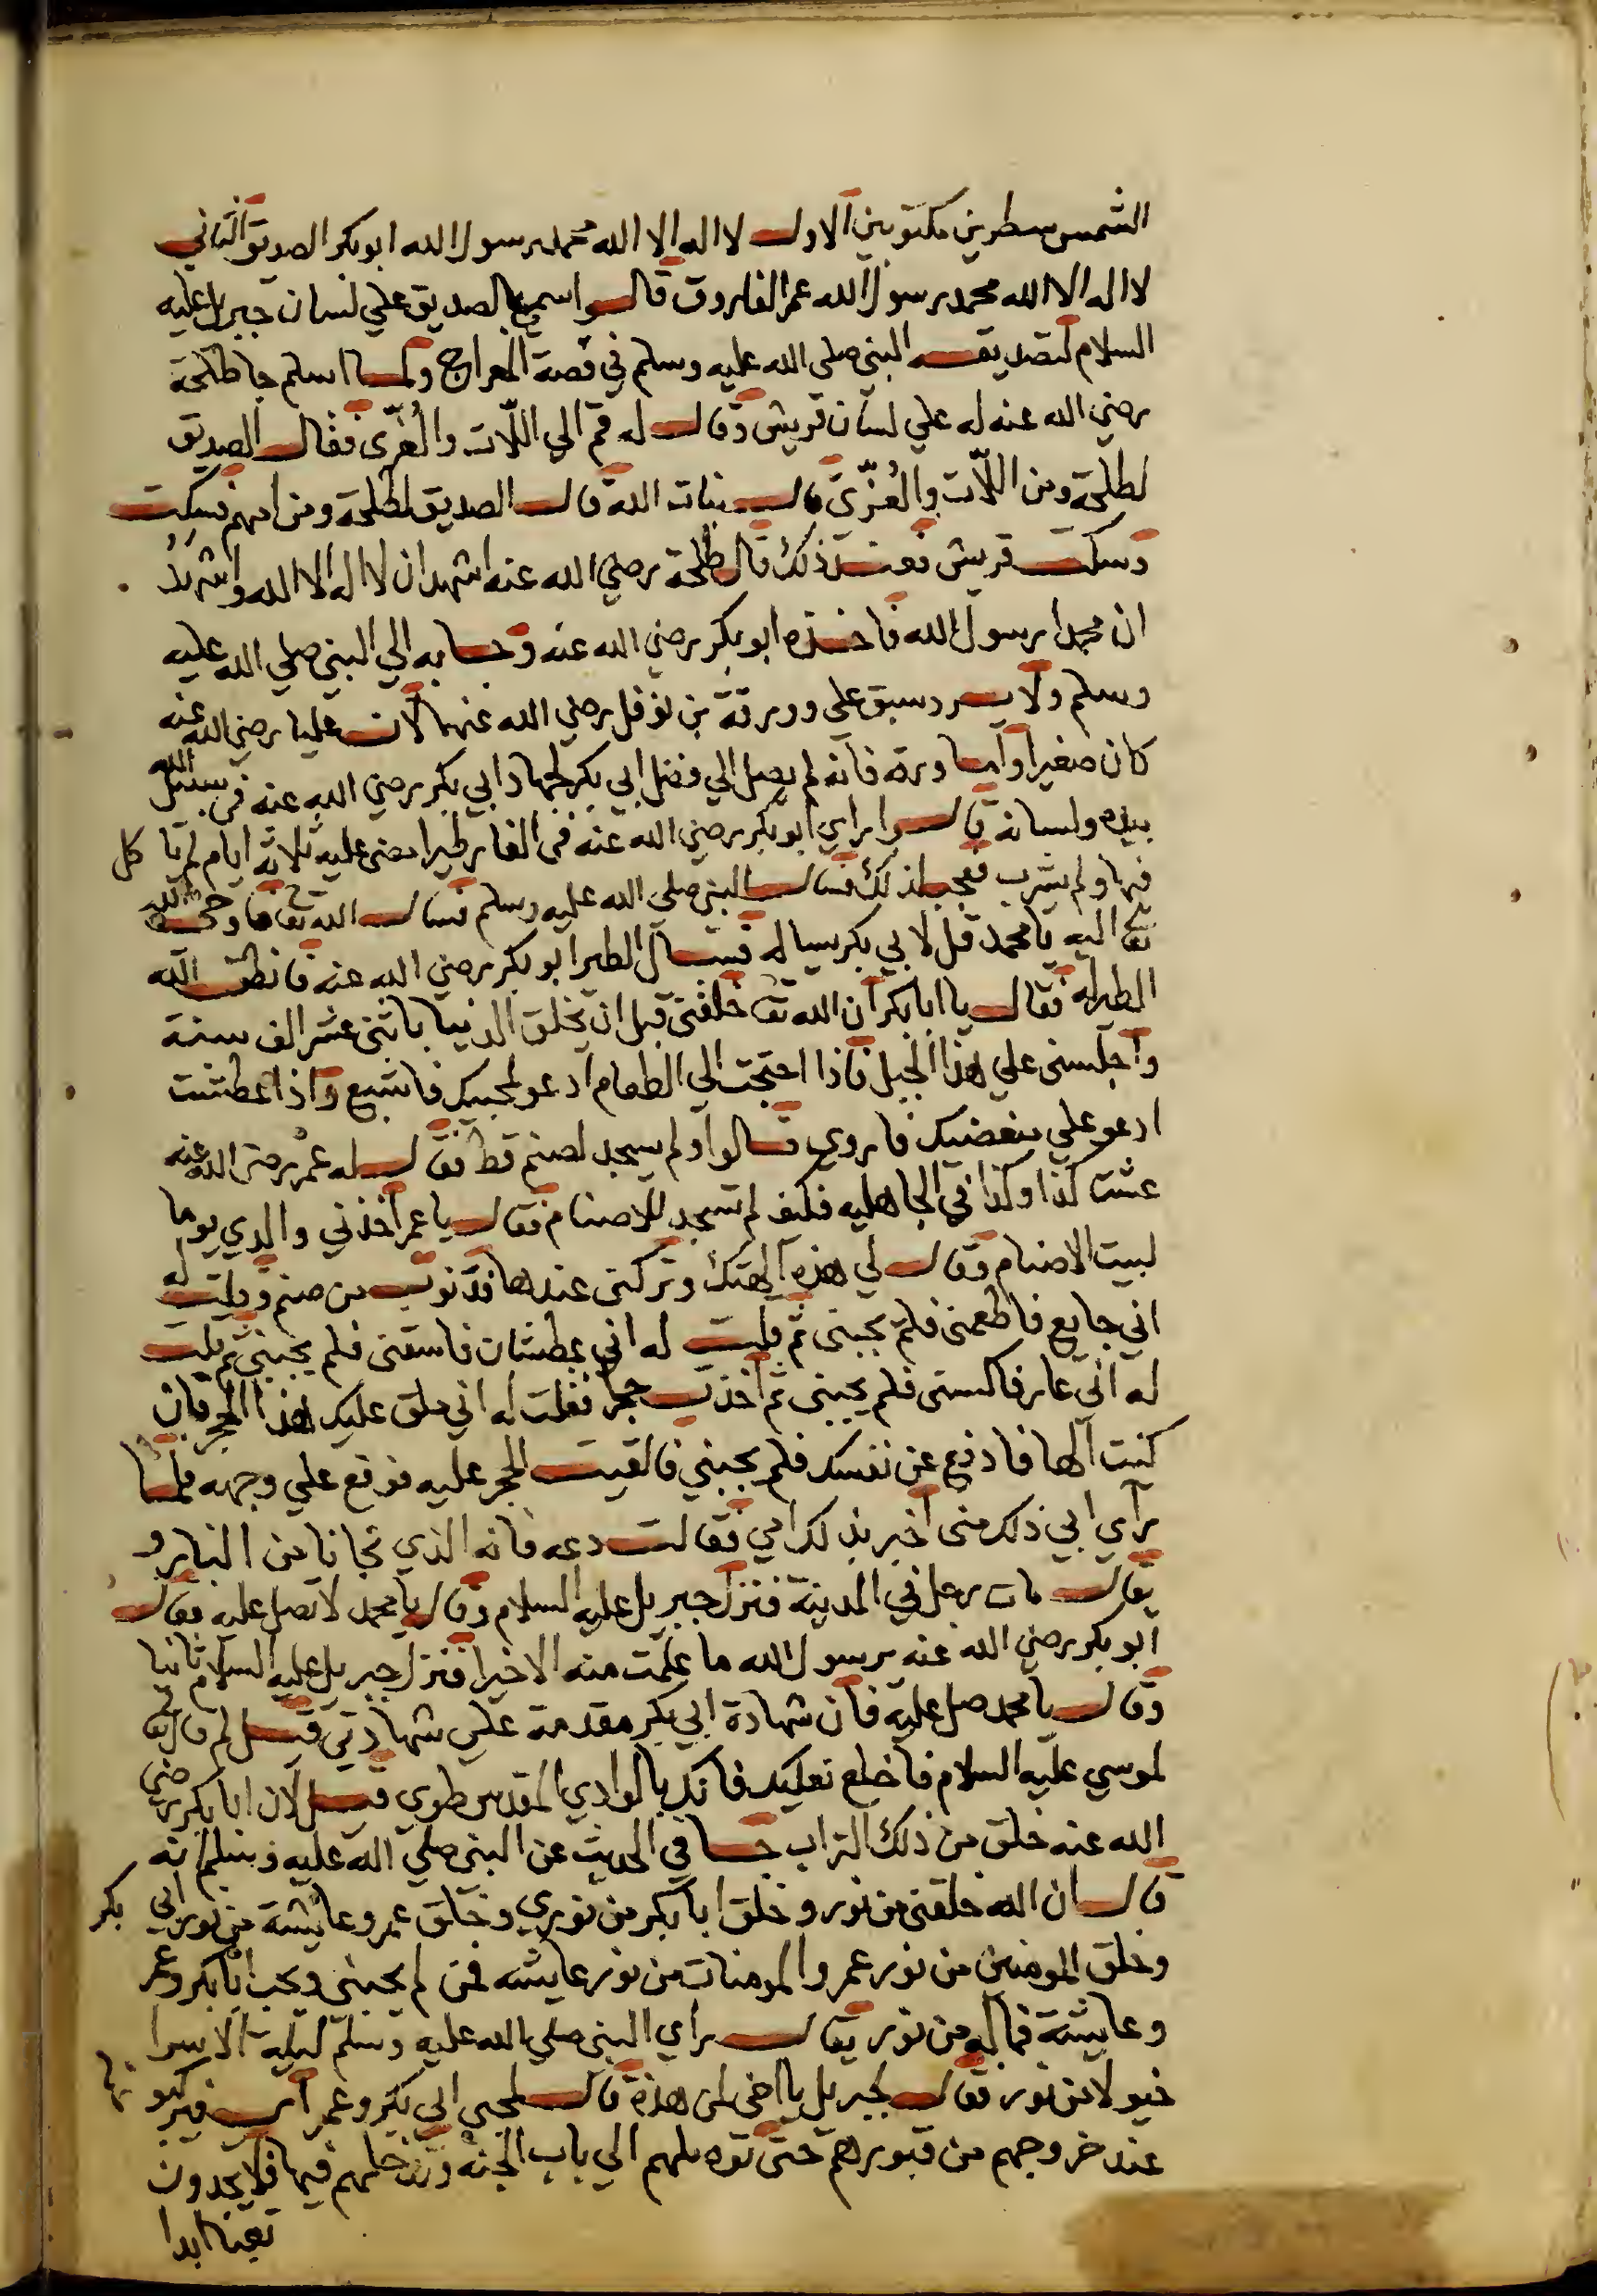 الشمس سطرين مكتوبين الاول لا اله الا الله محمد رسول الله ابو بكر الصديق الثاني
لا اله الا الله محمد رسول الله عمر الفاروق قالوا سمي بالصديق علي لسان جبريل عليه
السلام لتصديقه النبي صلي الله عليه وسلم في قصة المعراج ولما اسلم جا طلحة
رضي الله عنه له علي لسان قريش وقال له قم الي اللّات والعُزّى فقال الصديق
لطلحة ومن اللّات والعُزّى قال بنات الله قال الصديق لطلحة ومن امهم فسكت
وسكت قريش فعند ذلك قال طلحة رضي الله عنه اشهد ان لا اله الا الله واشهد
ان محمدا رسول الله فاخذه ابو بكر رضي الله عنه وجا به الي النبي صلي الله عليه
وسلم ولا يرد سبق علي وورقة بن نوفل رضي الله عنهما لان عليا رضي الله عنه
كان صغيرا واما ورقة فانه لم يصل الي فضل ابي بكر لجهاد ابي بكر رضي الله عنه في سبيل الله
بيده ولسانه قالوا راي ابو بكر رضي الله عنه في الغار طيرا مضى عليه ثلاثة ايام لم ياكل
فيها ولم يشرب فعجب لذلك فسال النبي صلي الله عليه وسلم فسال الله تع فاوحى الله
تع اليه يا محمد قل لابي بكر يساله فسال الطير ابو بكر رضي الله عنه فانطق الله
الطير له فقال يا ابا بكر ان الله تع خلقني قبل ان يخلق الدنيا باثنى عشر الف سنة
واجلسني علي هذا الجبل فاذا احتجت الي الطعام ادعو لمحبيك فاشبع واذا عطشت
ادعو علي مبغضيك فاروي قالوا ولم يسجد لصنم قط فقال له عمر رضي الله عنه
عشت كذا وكذا في الجاهليه فكيف لم تسجد للاصنام فقال يا عمر اخذني والدي يوما
لبيت الاصنام وقال لي هذه آلهتك وتركني عندها فدنوت من صنم وقلت له
اني جايع فاطعمني فلم يجبني ثم قلت له اني عطشان فاسقني فلم يجبني ثم قلت
له اني عار فاكسني فلم يجبني ثم اخذت حجرا فقلت له اني ملق عليك هذا الحجر فان
كنت الها فادفع عن نفسك فلم يجبني فالقيت الحجر عليه فوقع علي وجهه فلما
راي ابي ذلك مني اخبر بذلك امي فقالت دعه فانه الذي نجانا من النار و
يقال مات رجل في المدينة فنزل جبريل عليه السلام وقال يا محمد لا تصل عليه فقال
ابو بكر رضي الله عنه يرسول الله ما علمت منه الا خيرا فنزل جبريل عليه السلام ثانيا
وقال يا محمد صل عليه فان شهادة ابي بكر مقدمة علي شهادتي قيل لم قال تع
لموسي عليه السلام فاخلع نعليك فانك بالوادي المقدس طوي قيل لان ابا بكر رضي
الله عنه خلق من ذلك التراب جا في الحديث عن النبي صلي الله عليه وسلم انه
قال ان الله خلقني من نور وخلق ابا بكر من نوري وخلق عمر وعايشة من نور ابي بكر
وخلق المومنين من نور عمر والمومنات من نور عايشه فمن لم يحبني ويحب ابا بكر وعمر
وعايشة فما له من نور يقال راي النبي صلي الله عليه وسلم ليلة الاسرا
خيولا من نور فقال لجبريل يا اخي لمن هذه قال لمحبي ابي بكر وعمر اي فيركبونها
عند خروجهم من قبورهم حتى توصلهم الي باب الجنه وتدخلهم فيها فلا يجدون
تعبا ابدا